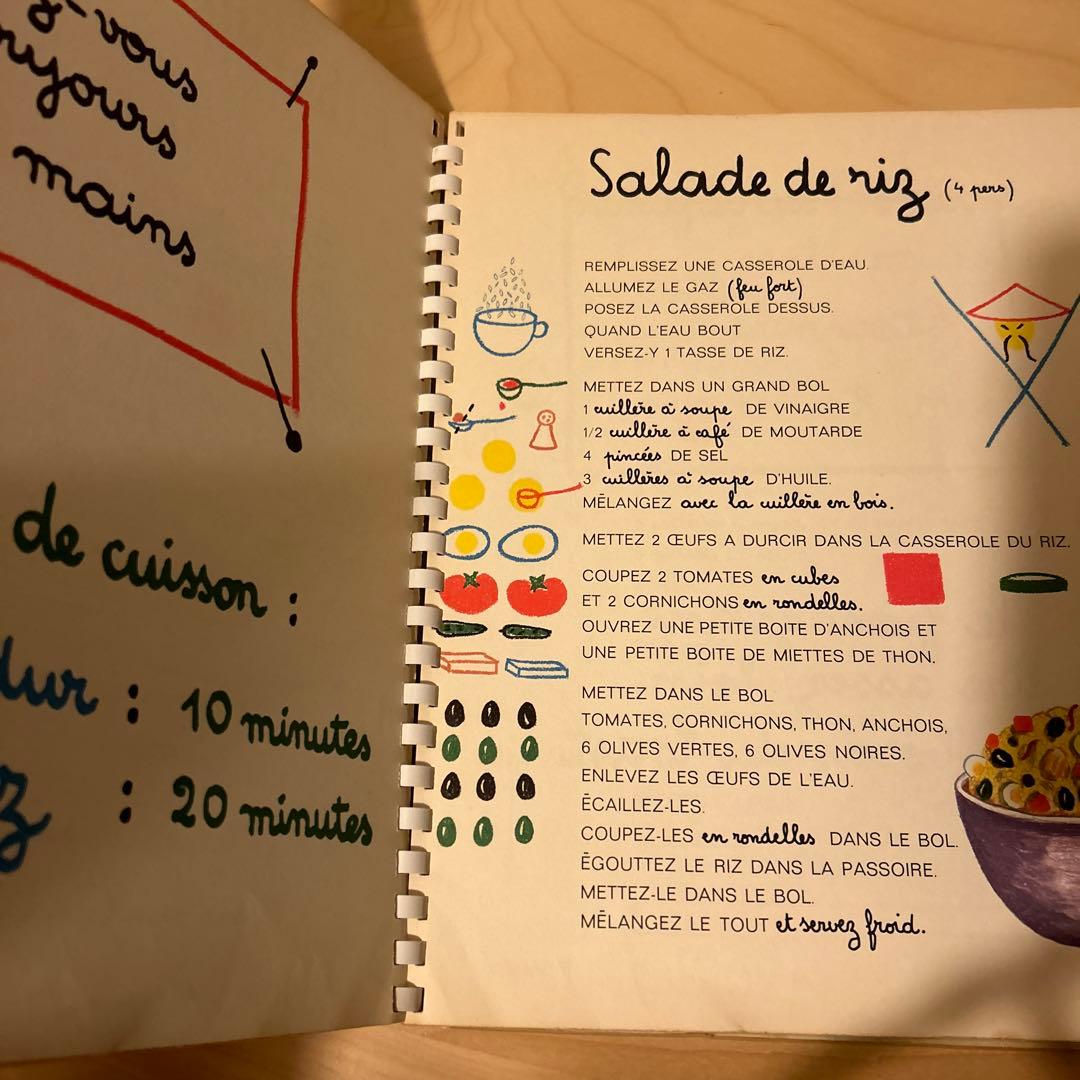 -vous
mains
de cuisson :
dur : 10 minutes
z : 20 minutes
Salade de riz (4 pers)
REMPLISSEZ UNE CASSEROLE D'EAU.
ALLUMEZ LE GAZ (feu fort)
POSEZ LA CASSEROLE DESSUS.
QUAND L'EAU BOUT
VERSEZ-Y 1 TASSE DE RIZ.
METTEZ DANS UN GRAND BOL
1 cuillère à soupe DE VINAIGRE
1/2 cuillère à café DE MOUTARDE
4 pincées DE SEL
3 cuillères à soupe D'HUILE.
MÉLANGEZ avec la cuillère en bois.
METTEZ 2 ŒUFS A DURCIR DANS LA CASSEROLE DU RIZ.
COUPEZ 2 TOMATES en cubes
ET 2 CORNICHONS en rondelles.
OUVREZ UNE PETITE BOITE D'ANCHOIS ET
UNE PETITE BOITE DE MIETTES DE THON.
METTEZ DANS LE BOL
TOMATES, CORNICHONS, THON, ANCHOIS,
6 OLIVES VERTES, 6 OLIVES NOIRES.
ENLEVEZ LES ŒUFS DE L'EAU.
ÉCAILLEZ-LES.
COUPEZ-LES en rondelles DANS LE BOL.
ÉGOUTTEZ LE RIZ DANS LA PASSOIRE.
METTEZ-LE DANS LE BOL.
MÉLANGEZ LE TOUT et servez froid.